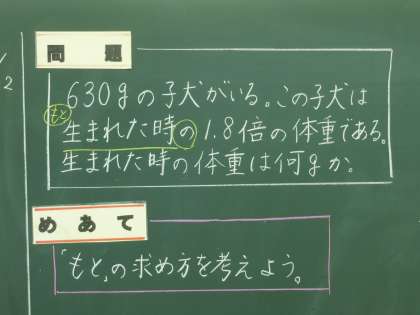 /2
問題
630gの子犬がいる。この子犬は
もと
生まれた時の1.8倍の体重である。
生まれた時の体重は何gか。
めあて
「もと」の求め方を考えよう。